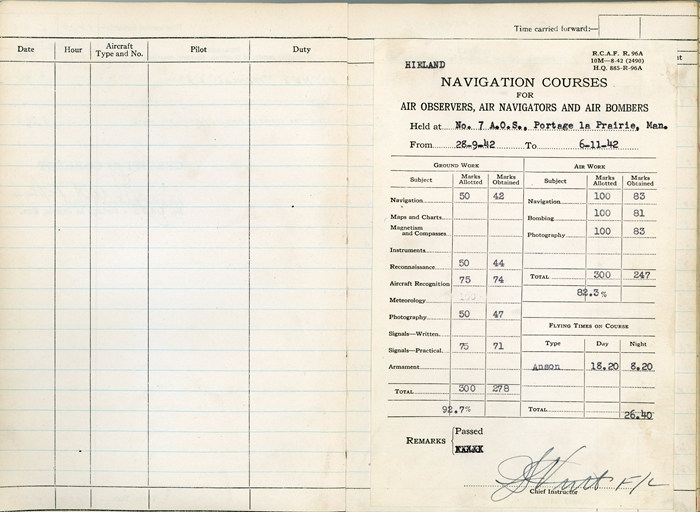 Time carried forward:—
Date Hour Aircraft Type and No. Pilot Duty
HIELAND
R.C.A.F. R. 96A
10M—8-42 (2490)
H.Q. 885-R-96A
NAVIGATION COURSES
FOR
AIR OBSERVERS, AIR NAVIGATORS AND AIR BOMBERS
Held at No. 7 A.O.S., Portage la Prairie, Man.
From 28-9-42 To 6-11-42
GROUND WORK
Subject Marks Allotted Marks Obtained
Navigation 50 42
Maps and Charts
Magnetism and Compasses
Instruments
Reconnaissance 50 44
Aircraft Recognition 75 74
Meteorology
Photography 50 47
Signals—Written
Signals—Practical 75 71
Armament
TOTAL 300 278
92.7%
AIR WORK
Subject Marks Allotted Marks Obtained
Navigation 100 83
Bombing 100 81
Photography 100 83
TOTAL 300 247
82.3%
FLYING TIMES ON COURSE
Type Day Night
Anson 18.20 8.20
TOTAL 26.40
REMARKS Passed
F/L
Chief Instructor